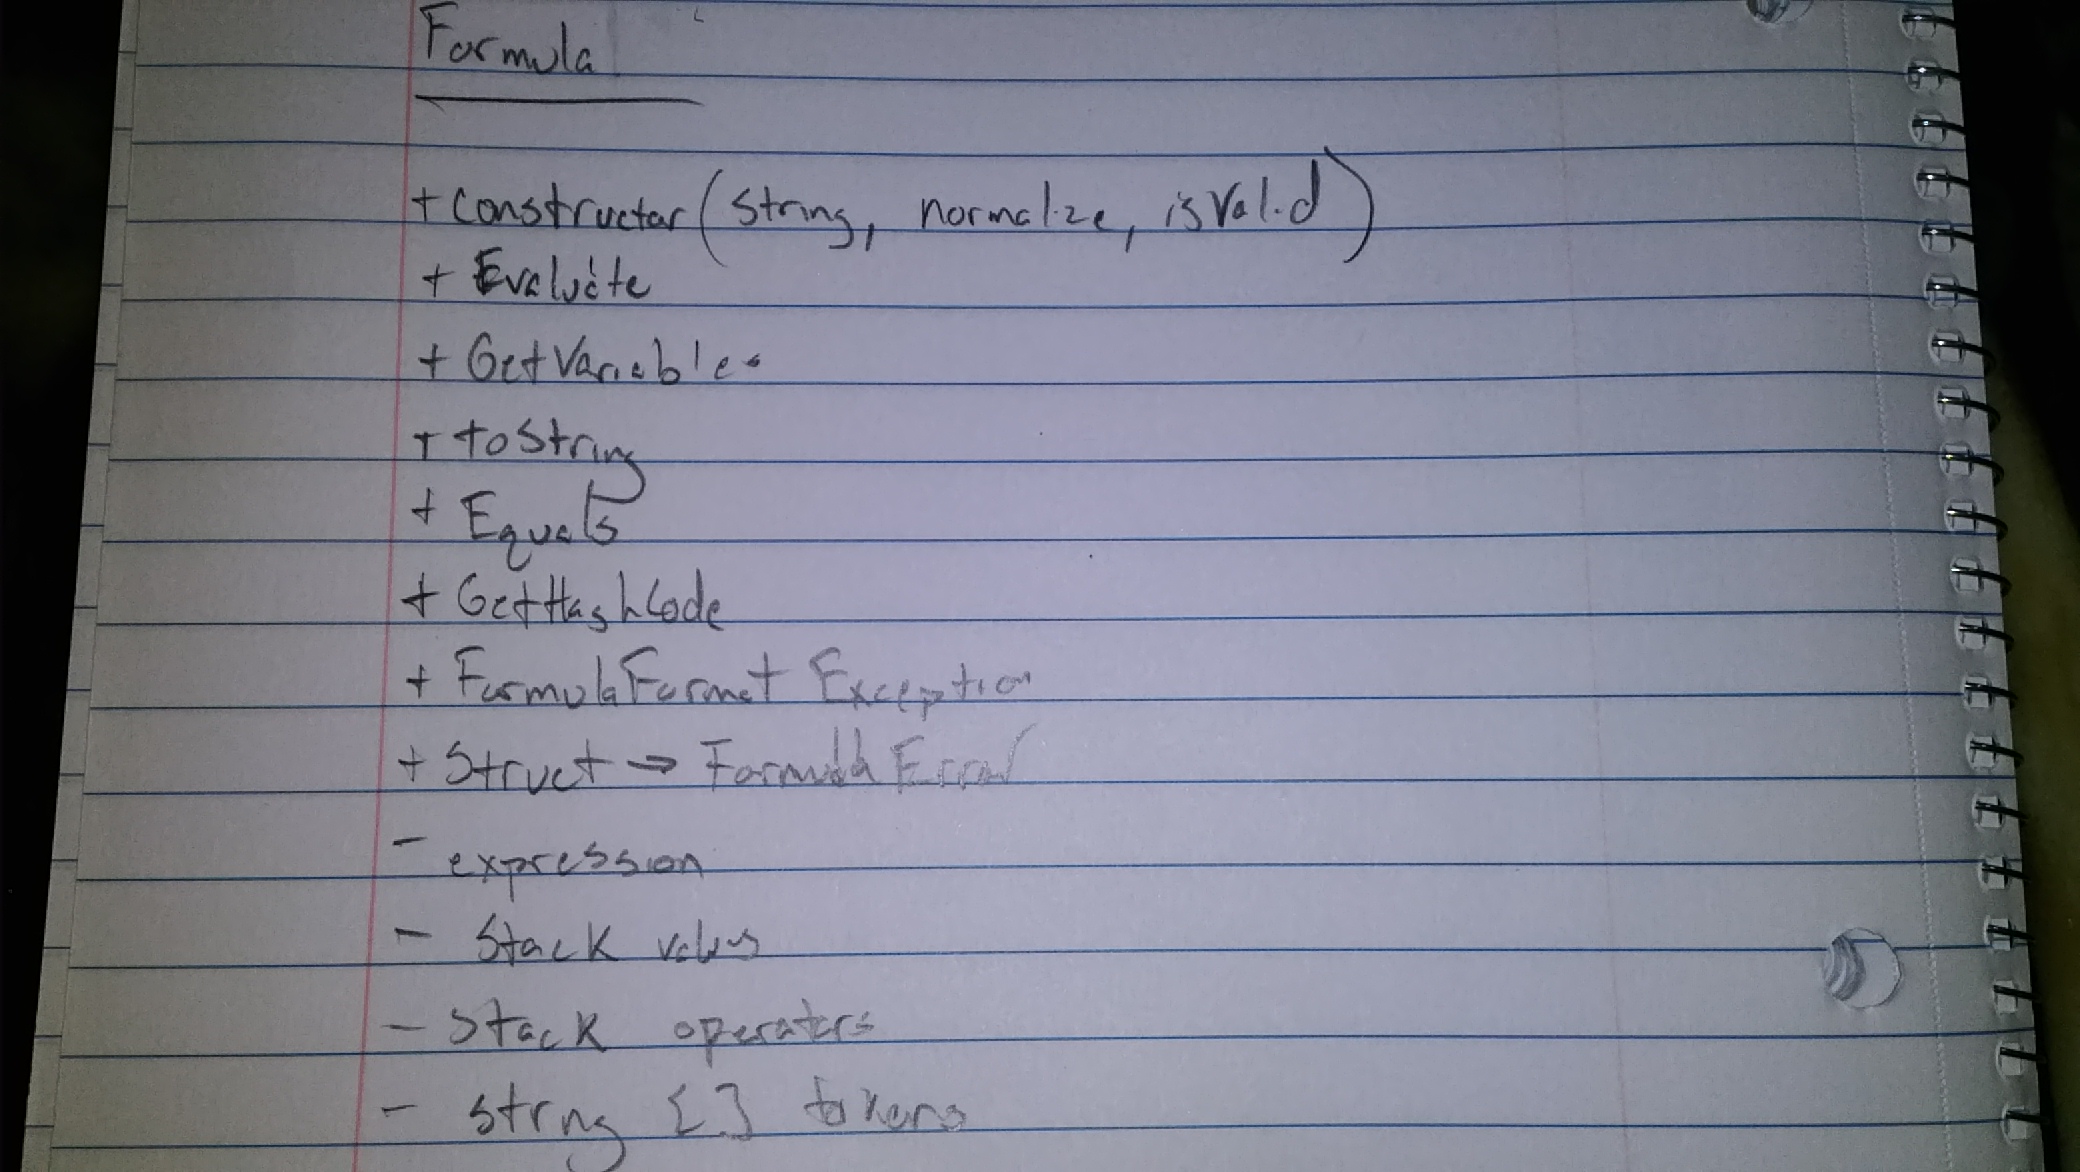 Formula
+ Constructor (String, normalize, isValid)
+ Evaluate
+ GetVariables
+ toString
+ Equals
+ GetHashCode
+ FormulaFormat Exception
+ Struct → Formula Error
- expression
- Stack values
- Stack operators
- String [] tokens